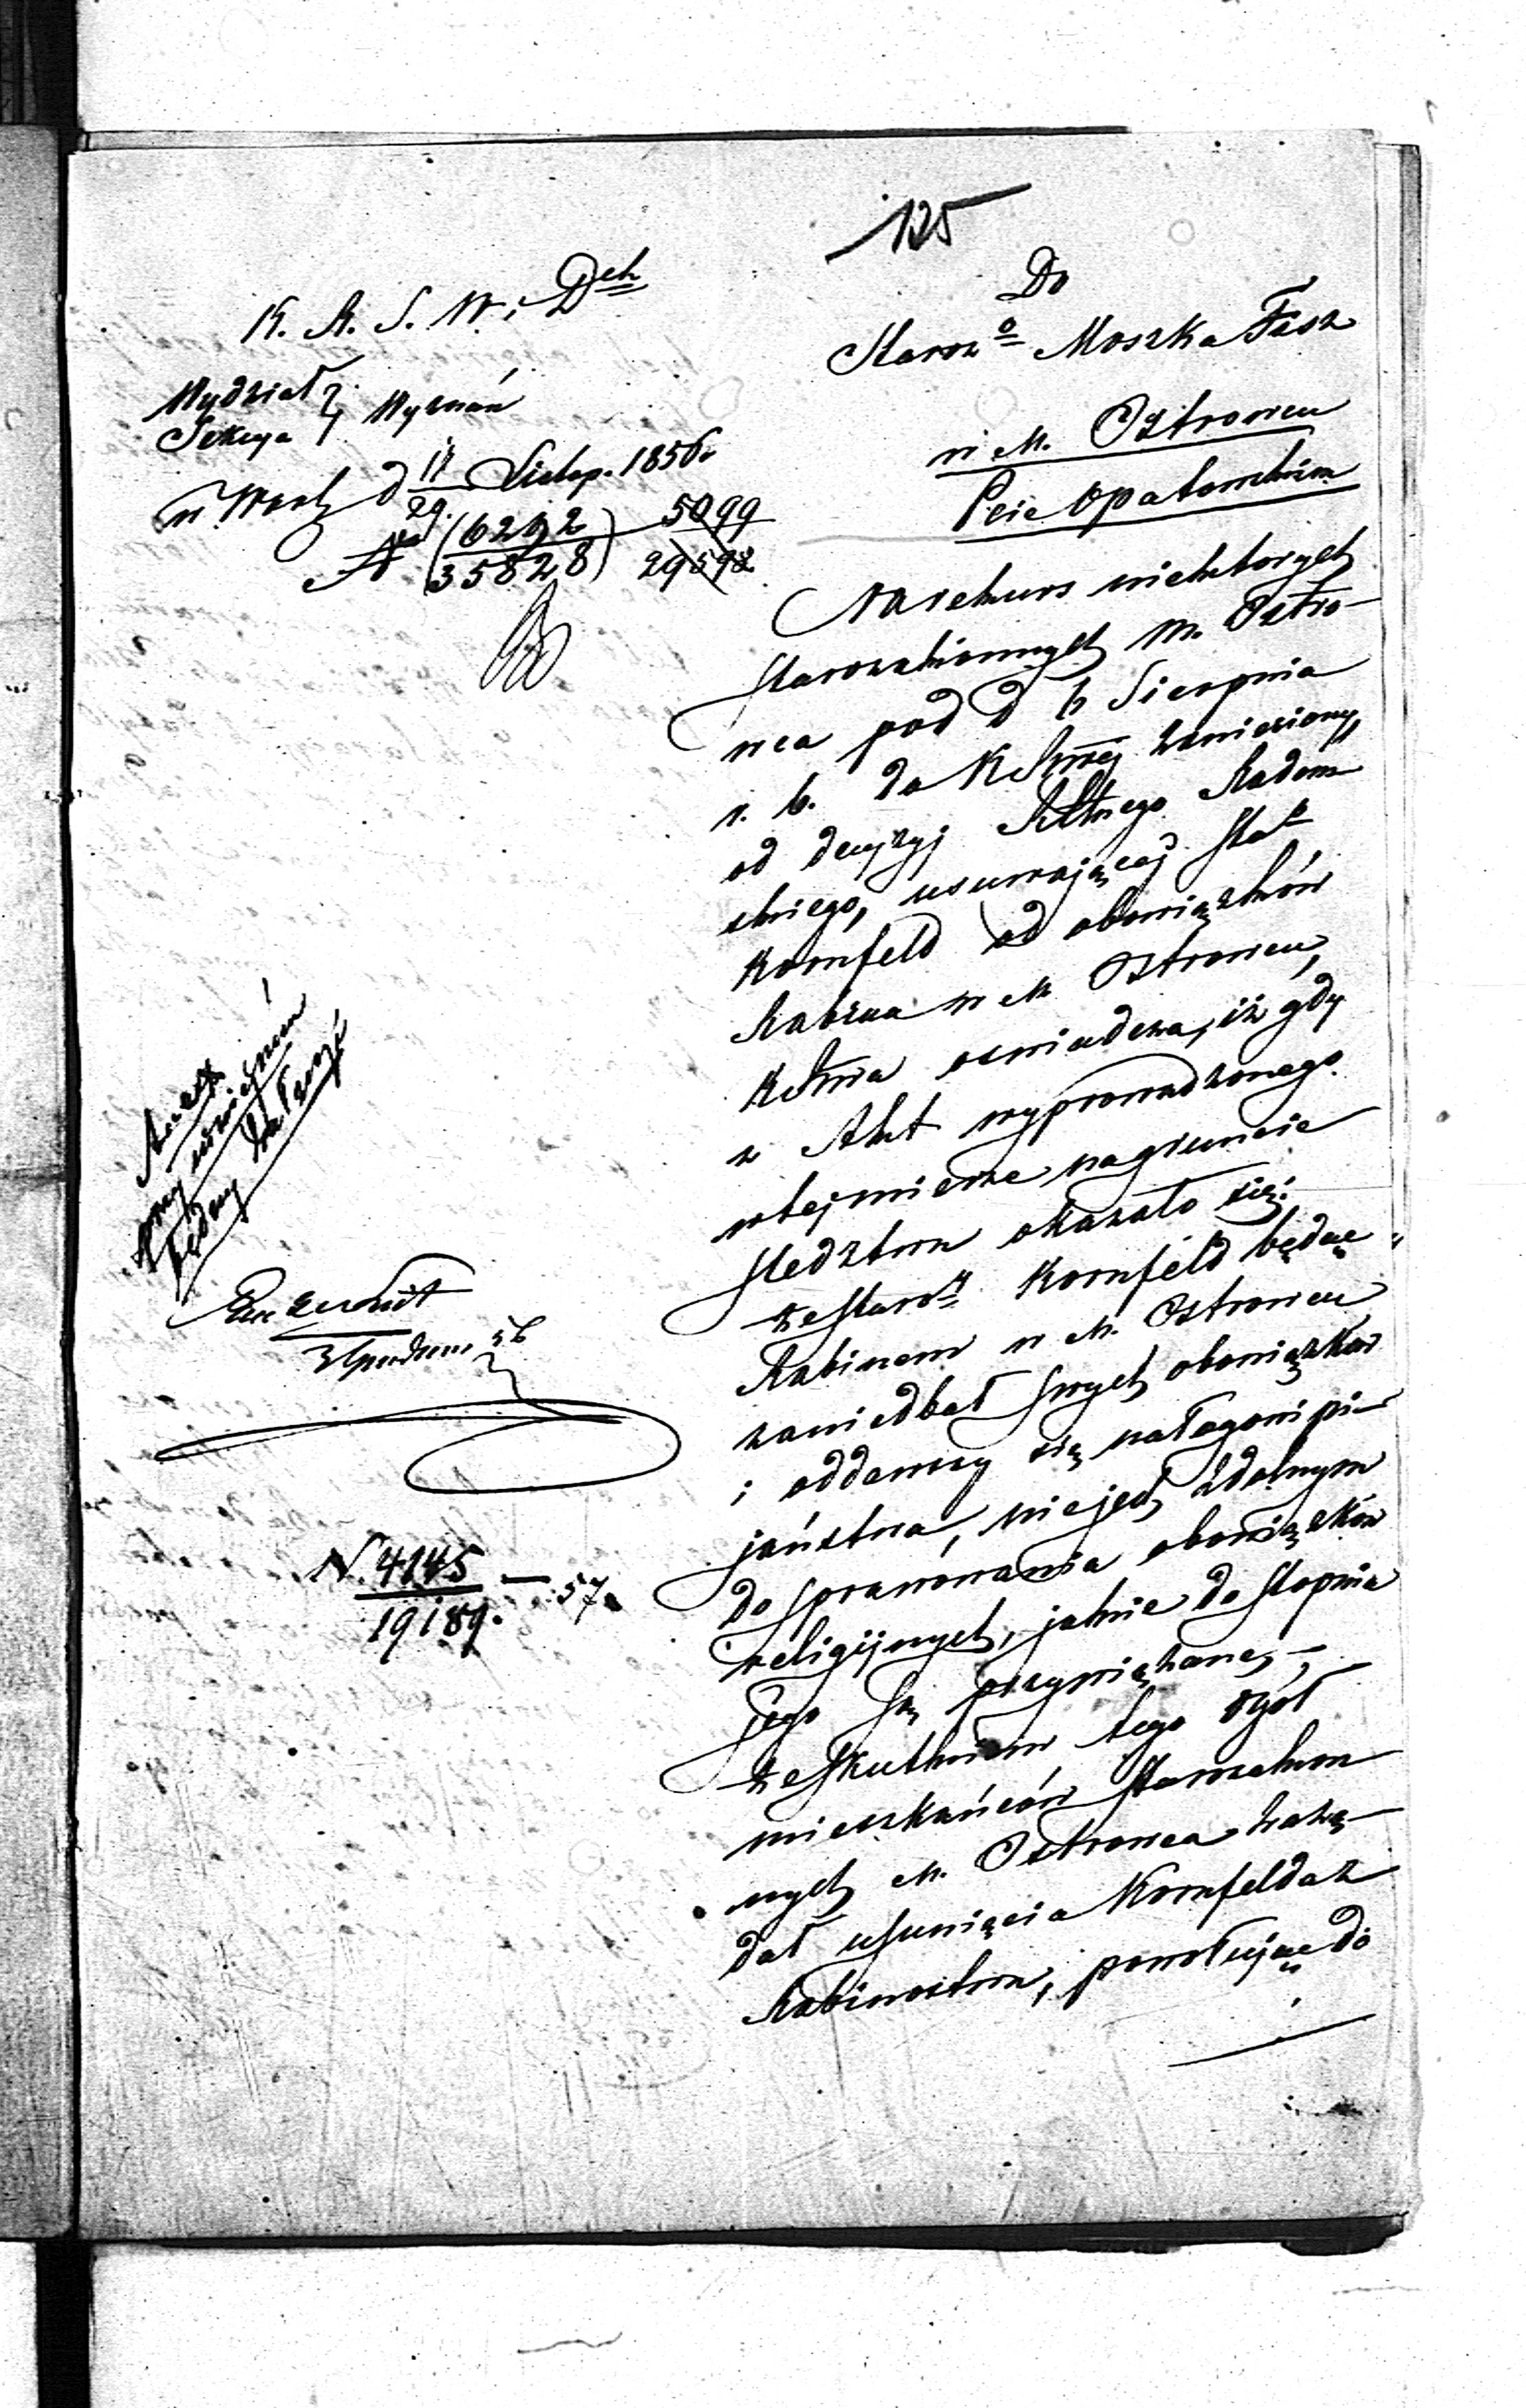 125
K. R. S. W. i Dch
Wydział
Sekcya } Wyznań
w Warsz d 17/29 Listop. 1856.
N 6262/35828 5099/29598
Do
Starozo Moszka Fasz
w M. Ostrowcu
Pcie Opatowskim
Na rekurs niektorych
starozakonnych M. Ostro-
wca pod d 6 Sierpnia
r. b. do KRządej zaniesiony,
od decyzyj Rządu Gubnego Radom
skiego, usuwającej Sta
Kornfeld od obowiązków
Rabina w M Ostrowcu,
oswiadcza, iż gdy
z Akt wyprowadzonego
w tej mierze na gruncie
sledztwa okazało się:
że Staroz Kornfeld będąc
Rabinem w M. Ostrowcu
zaniedbał swych obowiązków
i oddawszy się nałogowi pi-
jaństwa, niejest zdolnym
do sprawowania obowiązków
religijnych, jakie do stopnia
jego są przywiązane, -
że skutkiem tego ogół
mieszkańców starozakon
nych M. Ostrowca zażą-
dał usunięcia Kornfelda z
Rabinostwa, powołując do
Expedyt
3 Grudnia 56
N. 4145/19189. - 57.